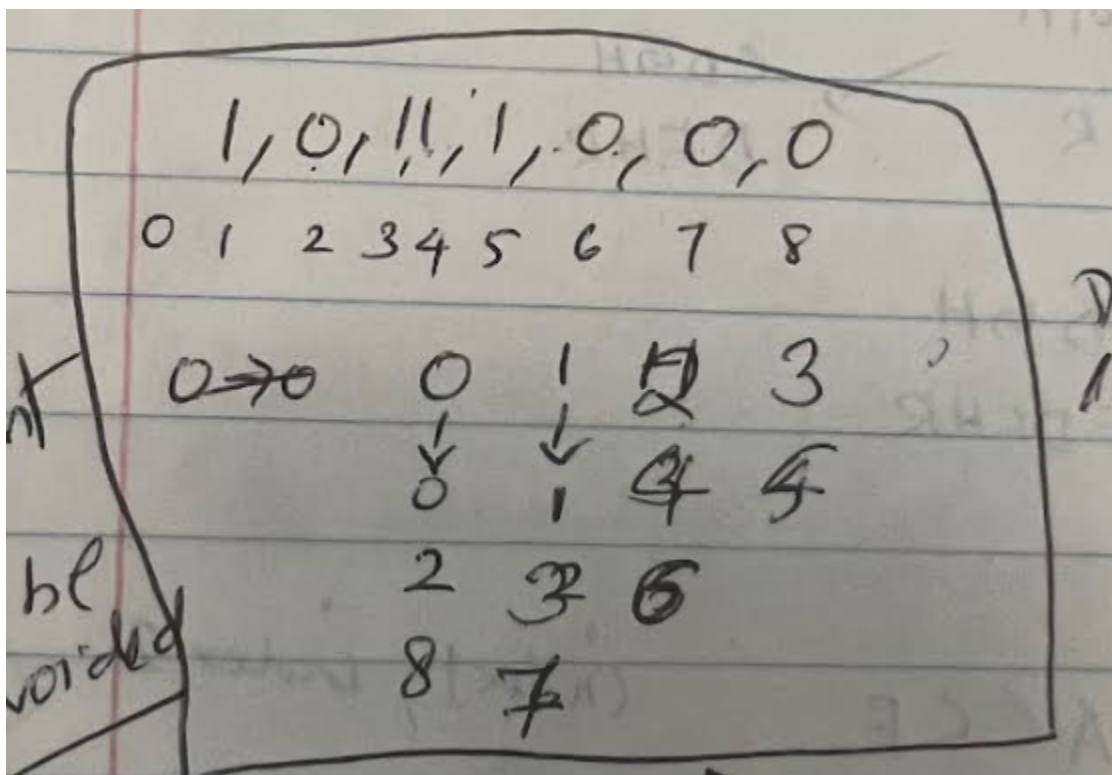 1, 0, 1, 1, 1, 0, 0, 0
0 1 2 3 4 5 6 7 8
0 → 0 0 1 2 3
0 1 4 5
2 3 6
be
8 7
voided